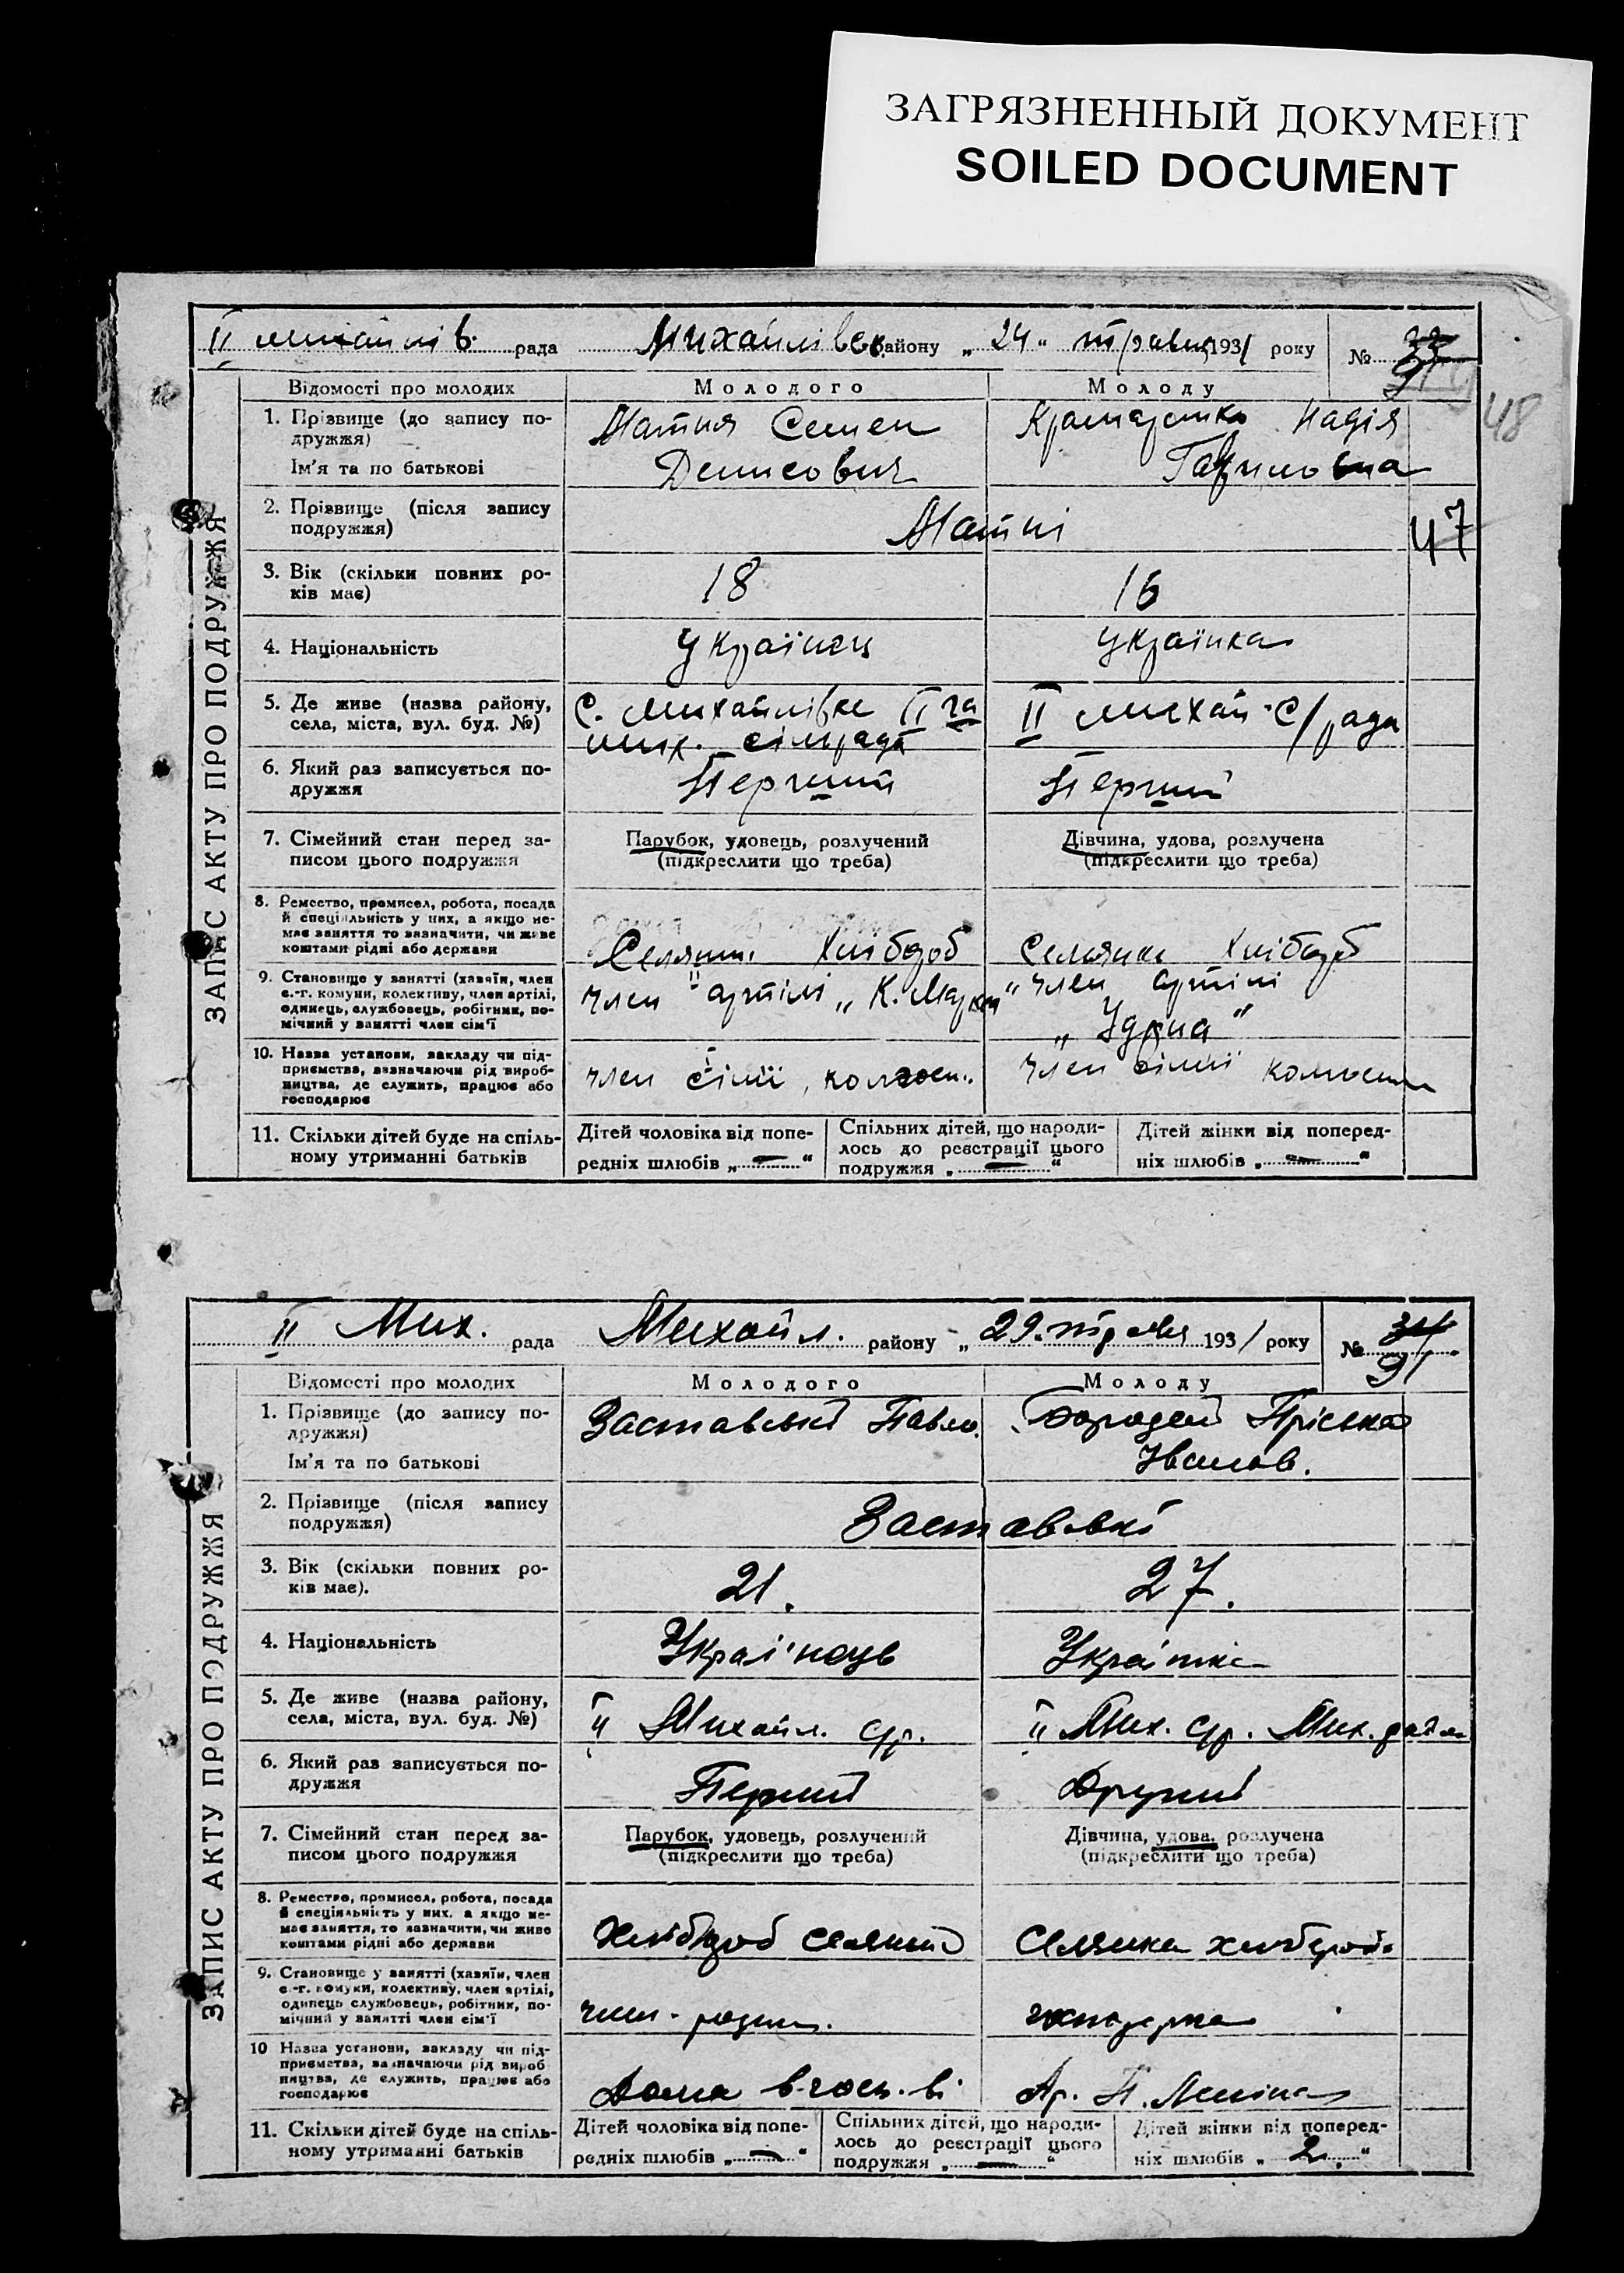 ЗАГРЯЗНЕННЫЙ ДОКУМЕНТ
SOILED DOCUMENT
II михайлів. рада Михайлівськ району „ 24 " травня 1931 року №
48
Відомості про молодих Молодого Молоду
1. Прізвище (до запису по-
дружжя)
Ім'я та по батькові
Матня Семен
Денисович
Надія
Гавриловна
2. Прізвище (після запису
подружжя)
Матні
47
3. Вік (скільки повних ро-
ків має)
18 16
4. Національність Українець Українка
5. Де живе (назва району,
села, міста, вул. буд. №)
С. Михайлівка II га
мих. сільрада
II михай. с/рада
6. Який раз записується по-
дружжя
Перший Перший
7. Сімейний стан перед за-
писом цього подружжя
Парубок, удовець, розлучений
(підкреслити що треба)
Дівчина, удова, розлучена
(підкреслити що треба)
8. Ремество, промисел, робота, посада
й спеціяльність у них, а якщо не-
має заняття то зазначити, чи живе
коштами рідні або держави
Селянин Хлібороб Селянка Хлібороб
9. Становище у занятті (хазяїн, член
с.-г. комуни, колективу, член артілі,
одинець, службовець, робітник, по-
мічний у занятті член сім'ї
член артілі „К. Маркса"
член артілі
„Ударна"
10. Назва установи, закладу чи під-
приємства, зазначаючи рід вироб-
ництва, де служить, працює або
господарює
член сімії, колгосп. член сімії
11. Скільки дітей буде на спіль-
ному утриманні батьків
Дітей чоловіка від попе-
редніх шлюбів „ — "
Спільних дітей, що народи-
лось до реєстрації цього
подружжя „ — "
Дітей жінки від поперед-
ніх шлюбів „ — "
ЗАПИС АКТУ ПРО ПОДРУЖЖЯ
II Мих. рада Михайл. району „ 29. травня 1931 року №
Відомості про молодих Молодого Молоду
1. Прізвище (до запису по-
дружжя)
Ім'я та по батькові
Заставські Павло.
Бородай Пріська
Іванов.
2. Прізвище (після запису
подружжя)
Заставські
3. Вік (скільки повних ро-
ків має).
21. 27.
4. Національність Українець Українка
5. Де живе (назва району,
села, міста, вул. буд. №)
II Михайл. с/р. II Мих. с/р. Мих. району
6. Який раз записується по-
дружжя
Перший Другий
7. Сімейний стан перед за-
писом цього подружжя
Парубок, удовець, розлучений
(підкреслити що треба)
Дівчина, удова, розлучена
(підкреслити що треба)
8. Ремество, промисел, робота, посада
й спеціяльність у них, а якщо не-
має заняття, то зазначити, чи живе
коштами рідні або держави
Хлібороб селянин Селянка хлібороб
9. Становище у занятті (хазяїн, член
с.-г. комуни, колективу, член артілі,
одинець службовець, робітник, по-
мічний у занятті член сім'ї
член. родин. господарка
10 Назва установи, закладу чи під-
приємства, зазначаючи рід вироб-
ництва, де служить, працює або
господарює
Дома в госп-ві Ар. Леніна
11. Скільки дітей буде на спіль-
ному утриманні батьків
Дітей чоловіка від попе-
редніх шлюбів „ — "
Спільних дітей, що народи-
лось до реєстрації цього
подружжя „ — "
Дітей жінки від поперед-
ніх шлюбів „ 2. "
ЗАПИС АКТУ ПРО ПОДРУЖЖЯ